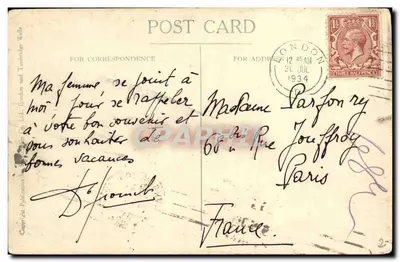 POST CARD
FOR CORRESPONDENCE
FOR ADDRESS
LONDON
12 AM
21 JUL
1934
THREE HALFPENCE
Ma femme, se joint à
moi pour se rappeler
à votre bon souvenir et
vous souhaiter de
bonnes vacances
Madame Parfonry
60 bis Rue Jouffroy
Paris
France